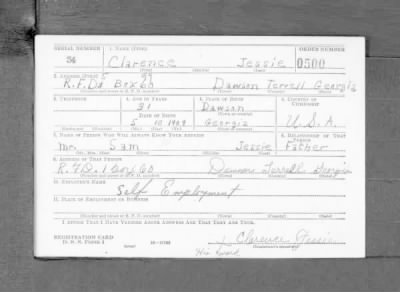 SERIAL NUMBER 1. NAME (Print) ORDER NUMBER
34 Clarence Jessie 0500
(First) (Middle) (Last)
2. ADDRESS (Print)
R.F.D. Box 60 Dawson Terrell Georgia
3. TELEPHONE 4. AGE IN YEARS 5. PLACE OF BIRTH 6. COUNTRY OF CITIZENSHIP
31 Dawson
DATE OF BIRTH
5 10 1909 Georgia U.S.A.
7. NAME OF PERSON WHO WILL ALWAYS KNOW YOUR ADDRESS 8. RELATIONSHIP OF THAT PERSON
Mr. Sam Jessie Father
(Mr., Mrs., Miss) (First) (Middle) (Last)
9. ADDRESS OF THAT PERSON
R.F.D. 1 Box 60 Dawson Terrell Georgia
10. EMPLOYER'S NAME
Self Employment
11. PLACE OF EMPLOYMENT OR BUSINESS
I AFFIRM THAT I HAVE VERIFIED ABOVE ANSWERS AND THAT THEY ARE TRUE.
REGISTRATION CARD
D. S. S. FORM 1 (over)
Clarence Jessie
(Registrant's signature)